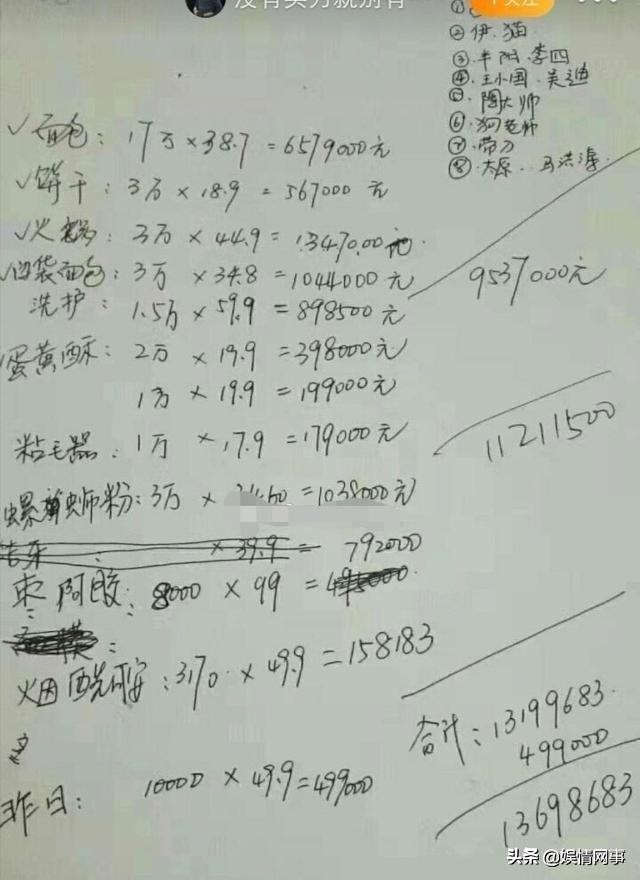 没有实力就别有
+关注
①
② 伊.猫
③ 牛阳.李四
④ 王小国.吴迪
⑤ 陶大师
⑥ 狗老师
⑦ 带刀
⑧ 太原..马洪涛
✓面包: 17万×38.7=6579000元
✓饼干: 3万×18.9=567000元
✓火锅: 3万×44.9=1347000元
✓口袋面包: 3万×34.8=1044000元
9537000元
洗护: 1.5万×59.9=898500元
蛋黄酥: 2万×19.9=398000元
1万×19.9=199000元
粘毛器: 1万×17.9=179000元
11211500
螺蛳粉: 3万×34.60=1038000元
×39.9=792000
枣阿胶: 8000×99=
烟酰胺: 3170×49.9=158183
合计: 13199683
499000
昨日: 10000×49.9=499000
13698683
头条 @娱情网事